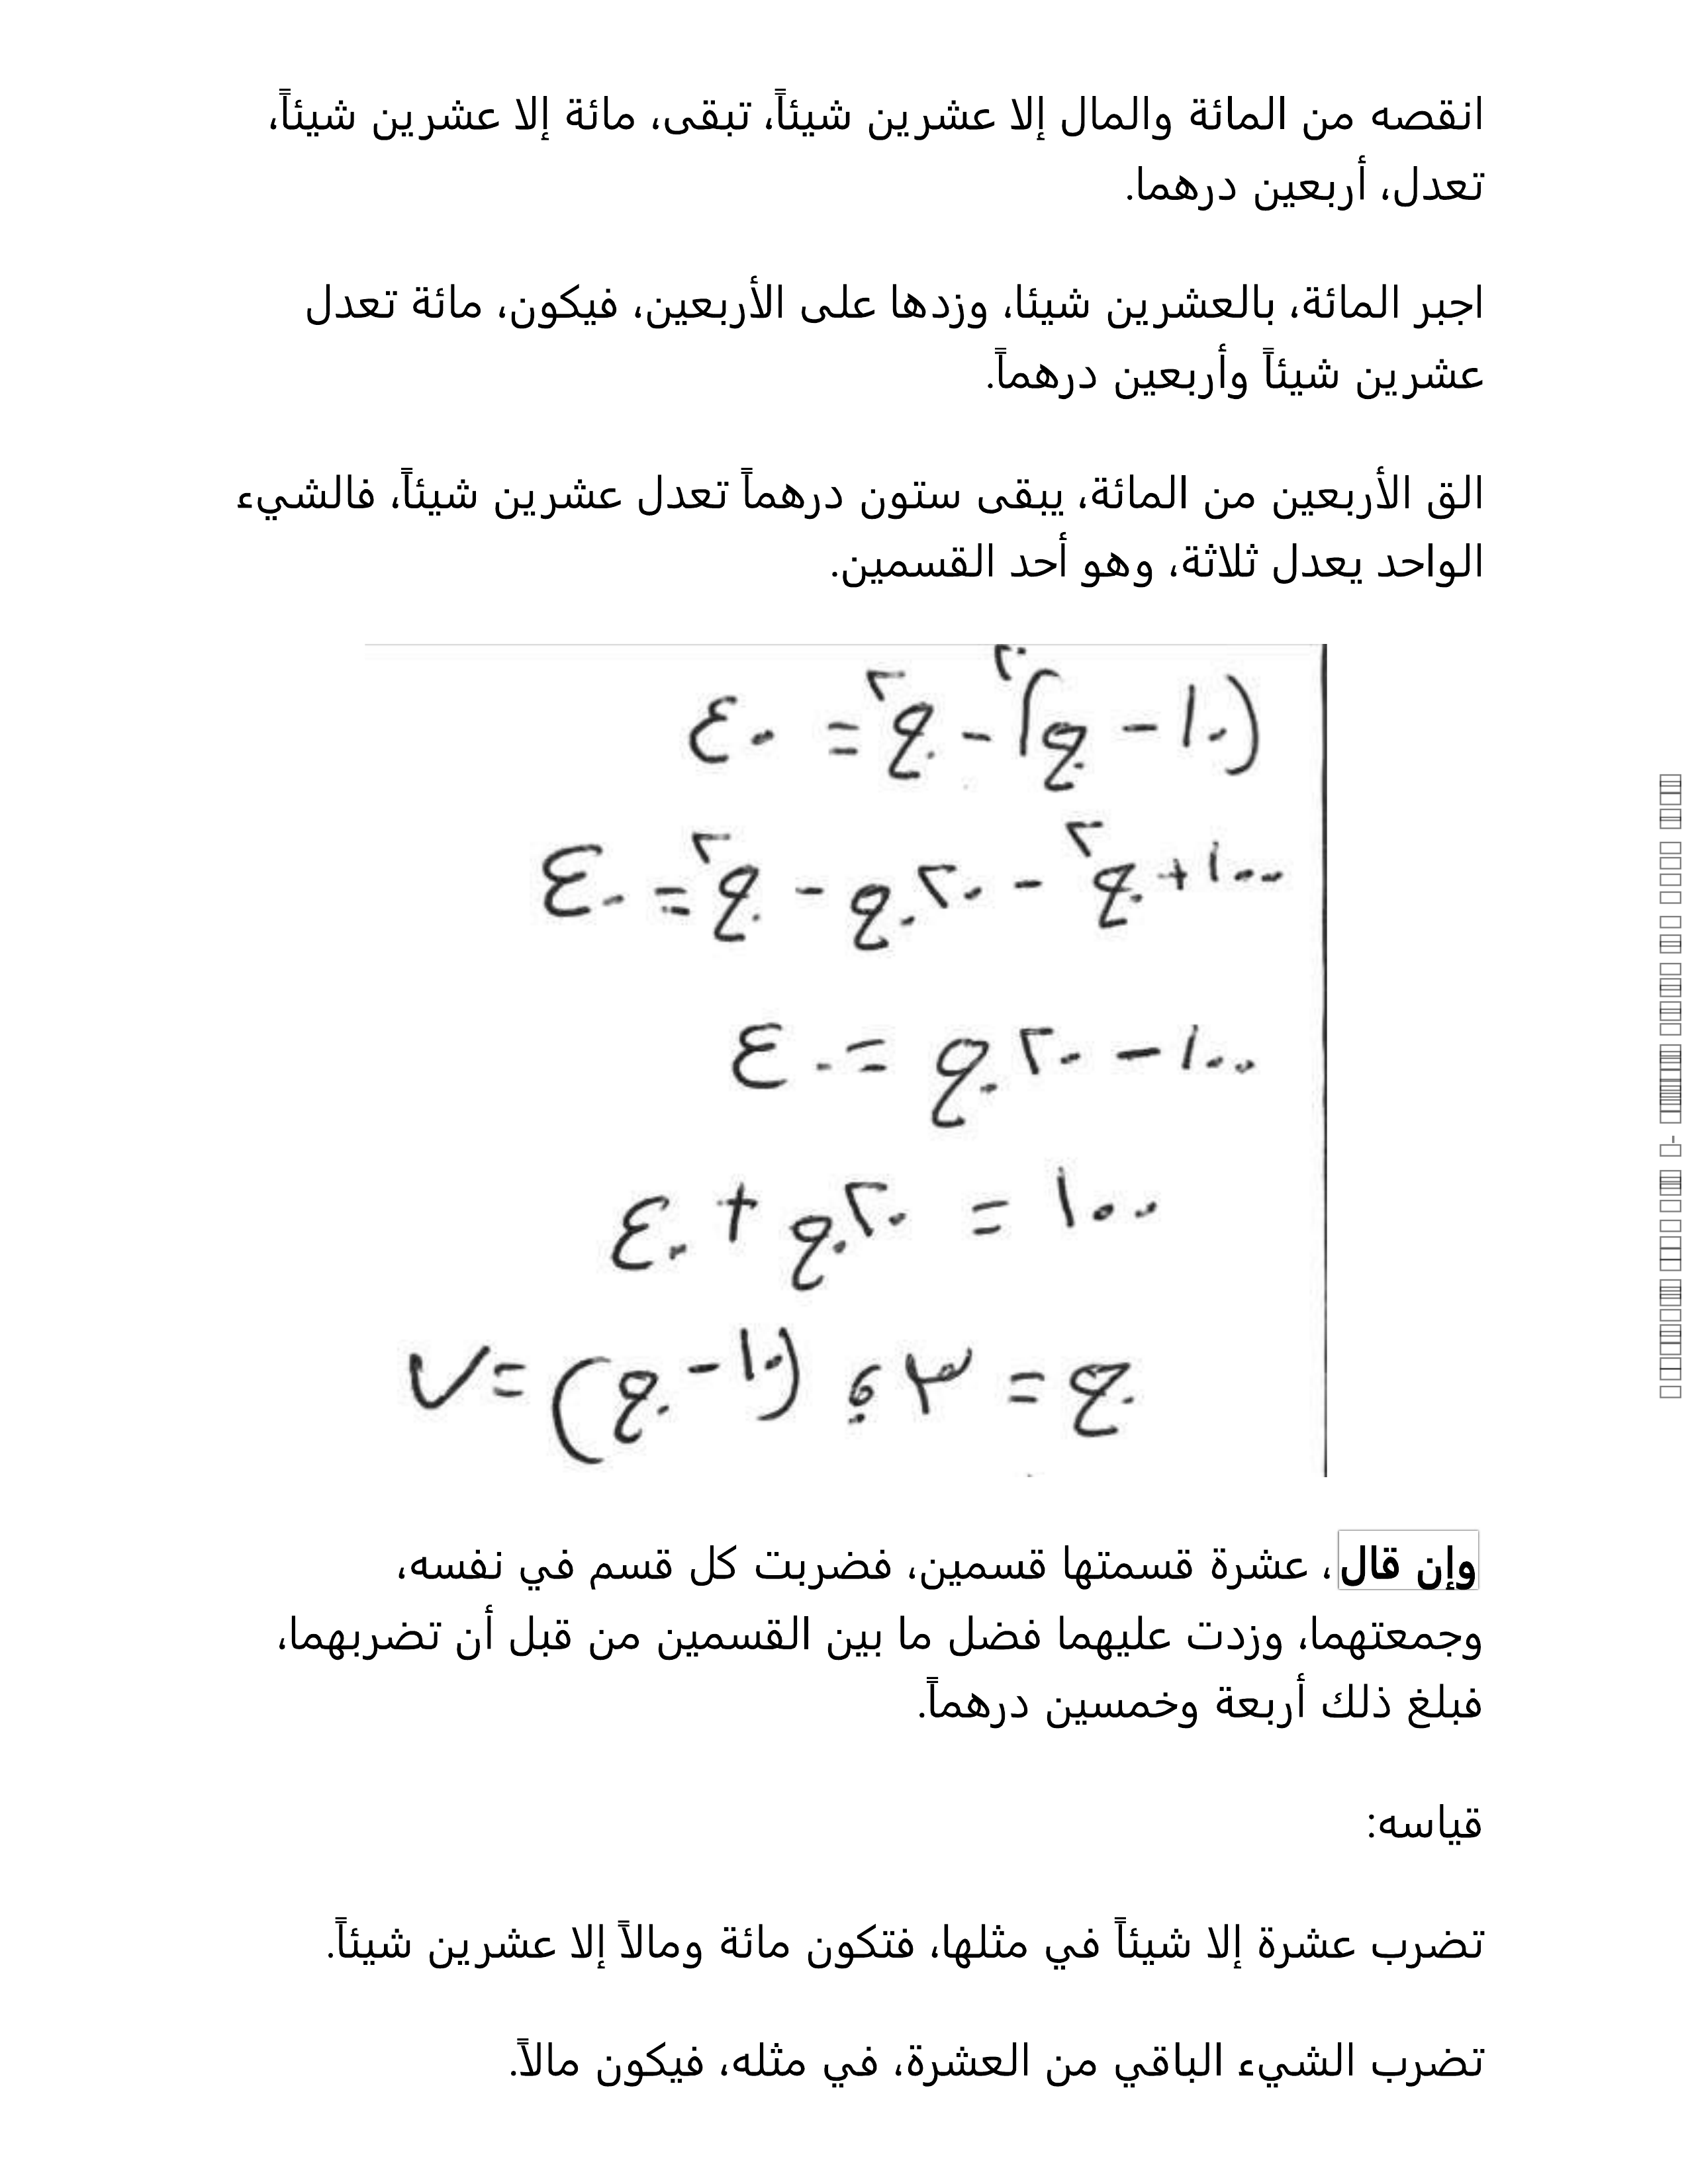 انقصه من المائة والمال إلا عشرين شيئاً، تبقى، مائة إلا عشرين شيئاً،
تعدل، أربعين درهما.
اجبر المائة، بالعشرين شيئا، وزدها على الأربعين، فيكون، مائة تعدل
عشرين شيئاً وأربعين درهماً.
الق الأربعين من المائة، يبقى ستون درهماً تعدل عشرين شيئاً، فالشيء
الواحد يعدل ثلاثة، وهو أحد القسمين.
(١٠ - ج)٢ - ج٢ = ٤٠
١٠٠ + ج٢ - ٢٠ج - ج٢ = ٤٠
١٠٠ - ٢٠ج = ٤٠
١٠٠ = ٢٠ج + ٤٠
ج = ٣ ؛ (١٠ - ج) = ٧
وإن قال، عشرة قسمتها قسمين، فضربت كل قسم في نفسه،
وجمعتهما، وزدت عليهما فضل ما بين القسمين من قبل أن تضربهما،
فبلغ ذلك أربعة وخمسين درهماً.
قياسه:
تضرب عشرة إلا شيئاً في مثلها، فتكون مائة ومالاً إلا عشرين شيئاً.
تضرب الشيء الباقي من العشرة، في مثله، فيكون مالاً.